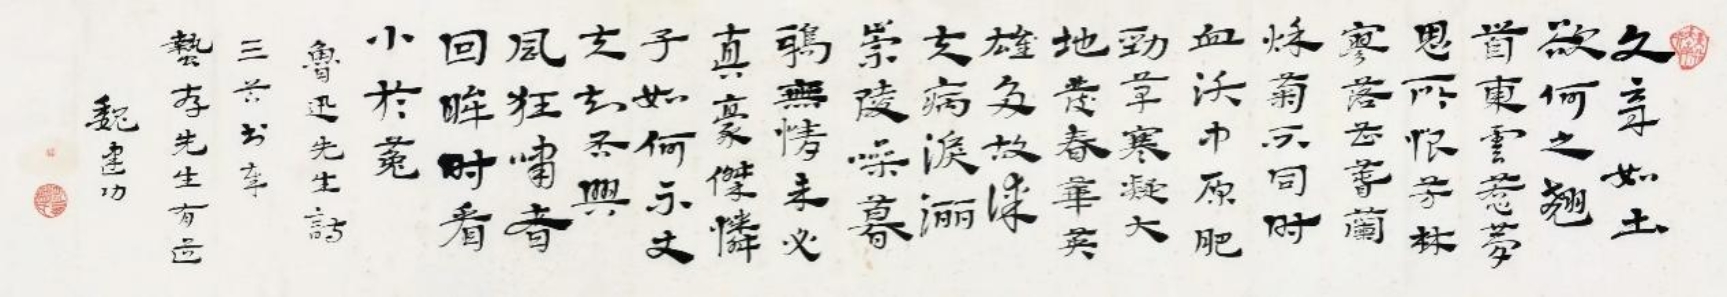 文章如土
欲何之翹
首東雲惹夢
思所恨芳林
寥落甚春蘭
秋菊不同时
血沃中原肥
勁草寒凝大
地發春華英
雄多故謀
夫病淚灑
崇陵噪暮
鴉無情未必
真豪傑憐
子如何不丈
夫知否興
風狂嘯者
回眸时看
小於菟
魯迅先生詩
三首書奉
蟄存先生有正
魏建功